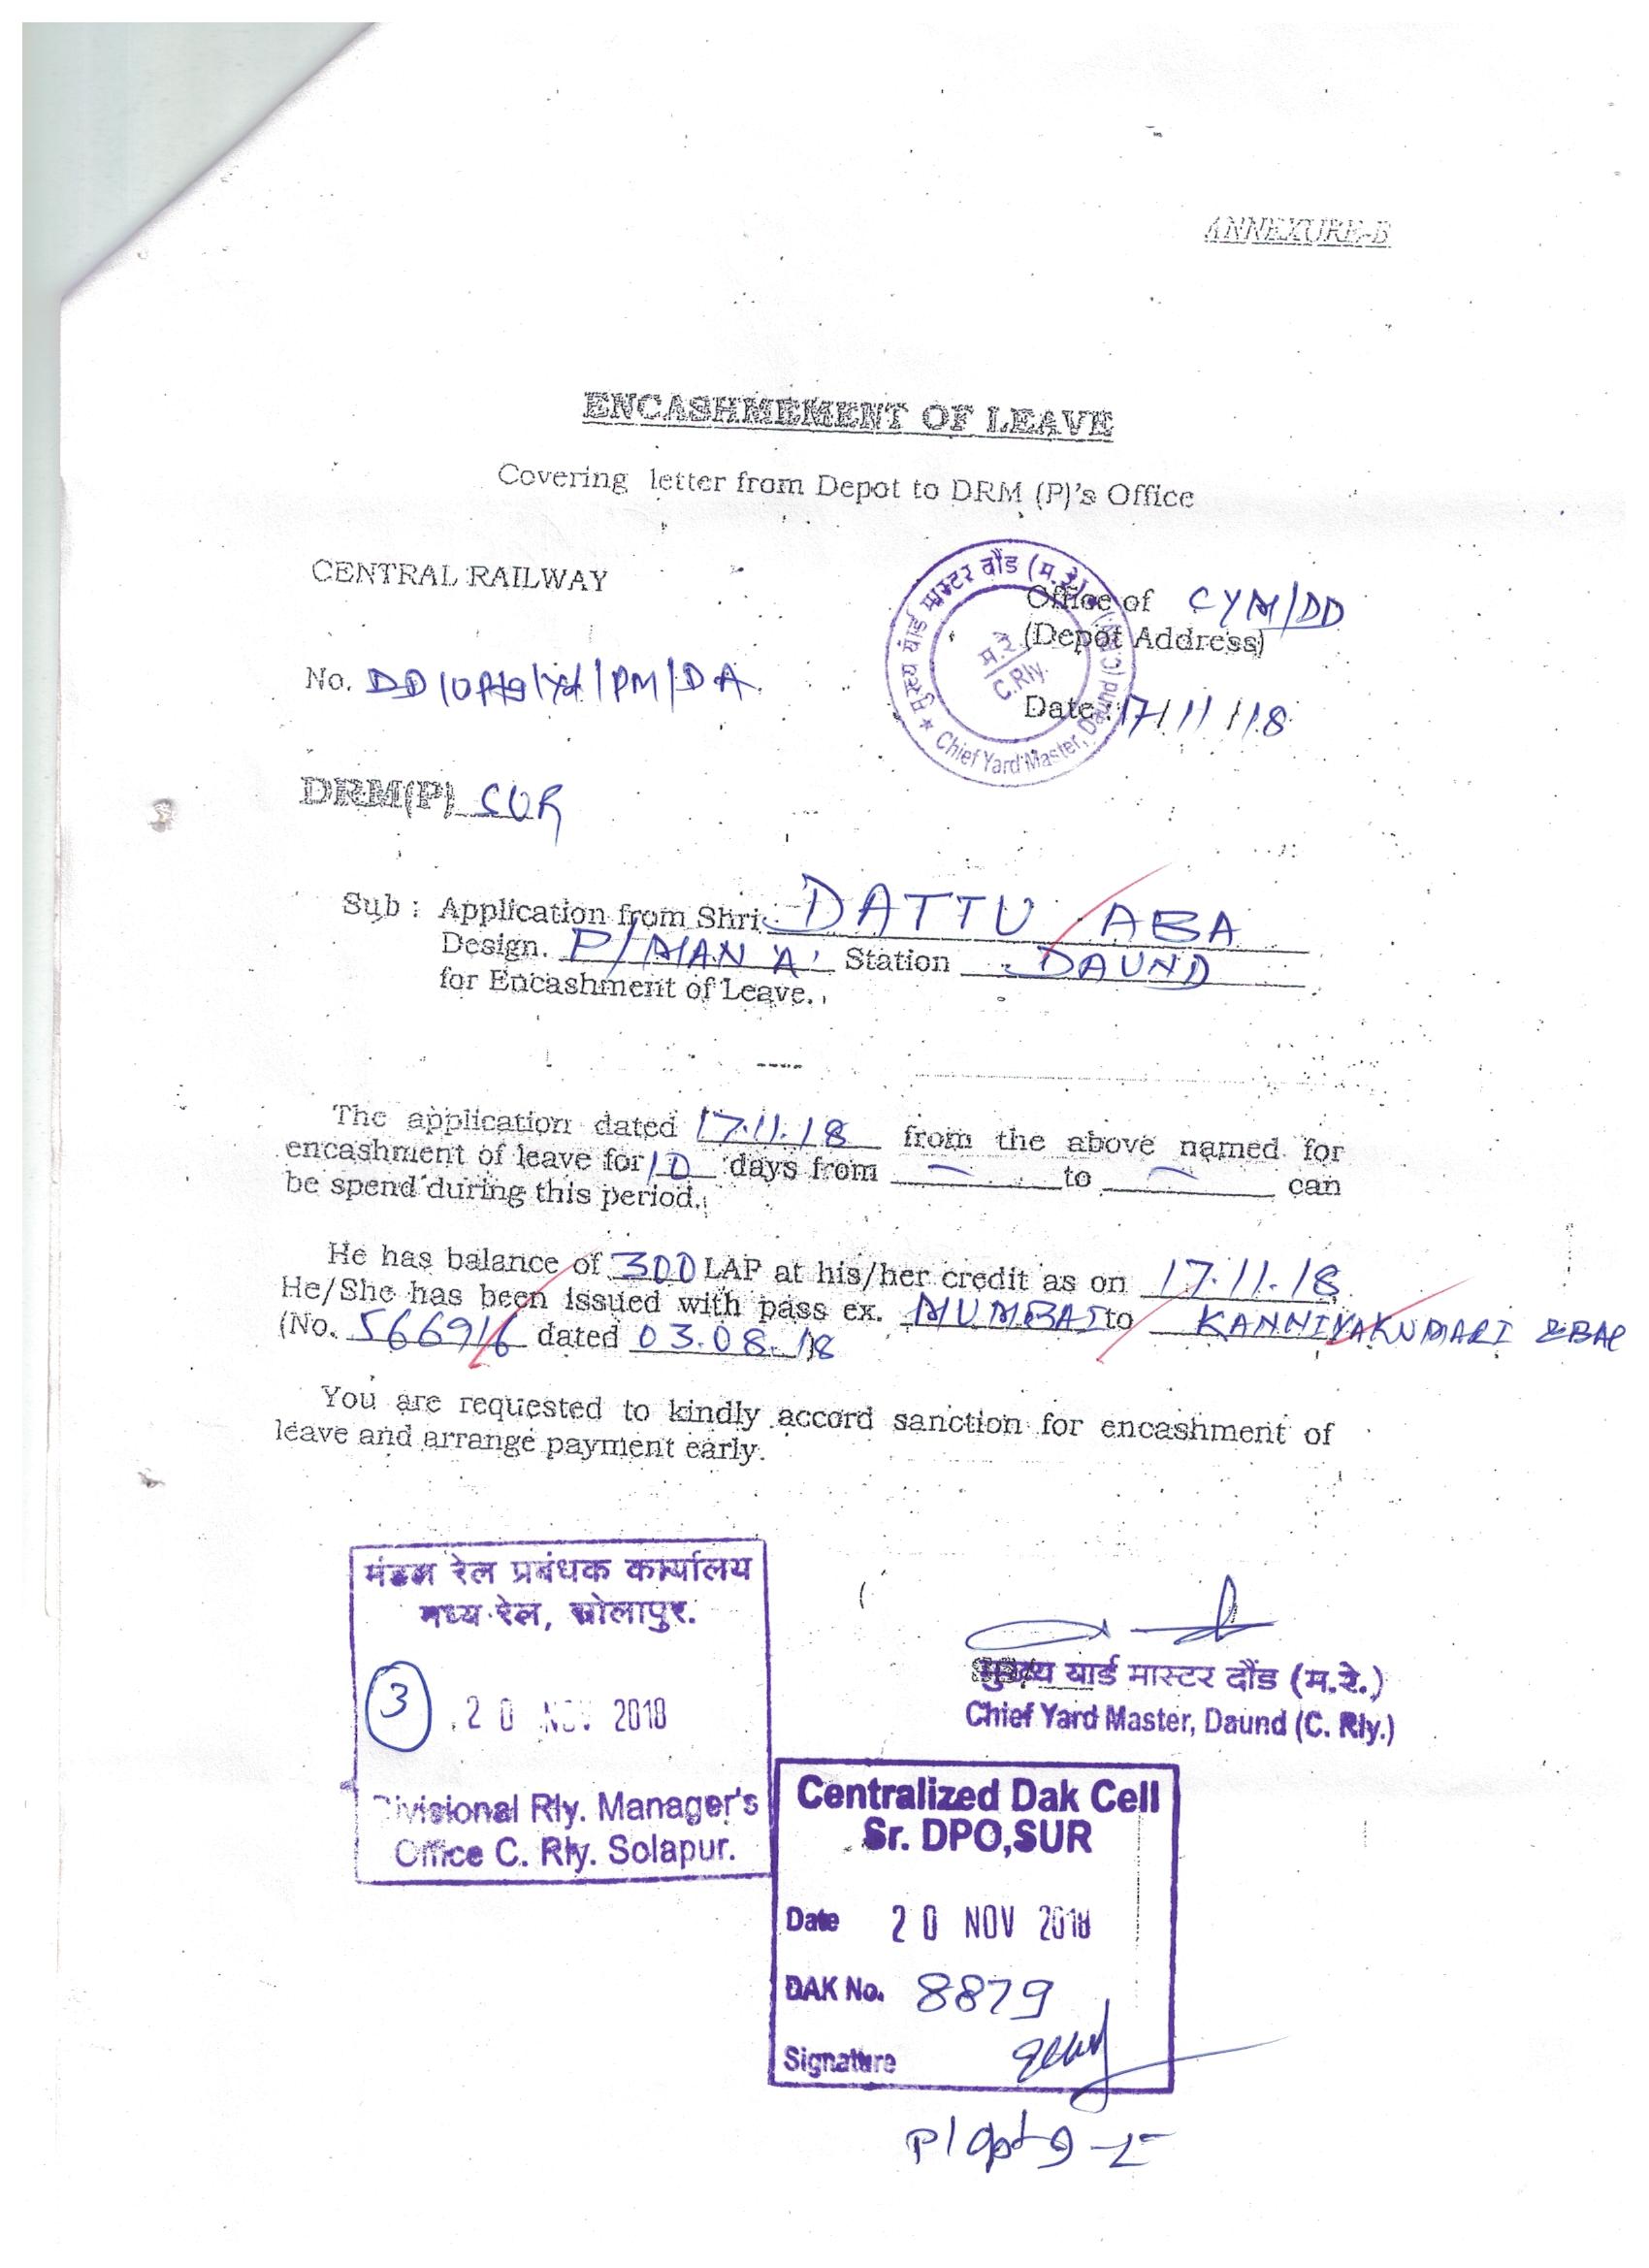 ANNEXURE-B
ENCASHMEMENT OF LEAVE
Covering letter from Depot to DRM (P)'s Office
CENTRAL RAILWAY
Office of CYM/DD
(Depot Address)
मुख्य यार्ड मास्टर दौंड (म.रे)
म.रे
C.Rly.
Chief Yard Master, Daund (C.Rly)
No. DD
PM/DA
Date: 17/11/18
DRM(P) SUR
Sub : Application from Shri DATTU ABA
Design. P/MAN 'A' Station DAUND
for Encashment of Leave.
The application dated 17.11.18 from the above named for
encashment of leave for 10 days from — to — can
be spend during this period.
He has balance of 300 LAP at his/her credit as on 17.11.18
He/She has been issued with pass ex. MUMBAI to KANNIYAKUMARI
(No. 566916 dated 03.08.18
You are requested to kindly accord sanction for encashment of
leave and arrange payment early.
मंडल रेल प्रबंधक कार्यालय
मध्य रेल, सोलापुर.
3
20 NOV 2018
Divisional Rly. Manager's
Office C. Rly. Solapur.
मुख्य यार्ड मास्टर दौंड (म.रे.)
Chief Yard Master, Daund (C. Rly.)
Centralized Dak Cell
Sr. DPO,SUR
Date 20 NOV 2018
DAK No. 8879
Signature